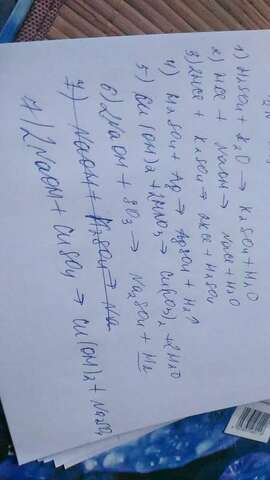 1) H2SO4 + K2O → K2SO4 + H2O
2) HCl + NaOH → NaCl + H2O
3) 2HCl + K2SO4 → 2KCl + H2SO4
4) H2SO4 + Ag → Ag2SO4 + H2↑
5) Cu(OH)2 + 2HNO3 → Cu(NO3)2 + 2H2O
6) 2NaOH + SO3 → Na2SO4 + H2
7) NaOH + H2SO4 → Na
7) 2NaOH + CuSO4 → Cu(OH)2 + Na2SO4